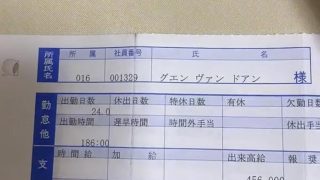 所属氏名
所属 社員番号 氏名
016 001329 グエン ヴァン ドアン 様
勤怠他
出勤日数 休出日数 特休日数 有休 欠勤日数
24.0
出勤時間 遅早時間 時間外手当 休出手
186:00
支
時間給 加給 出来高給 報奨
456,000